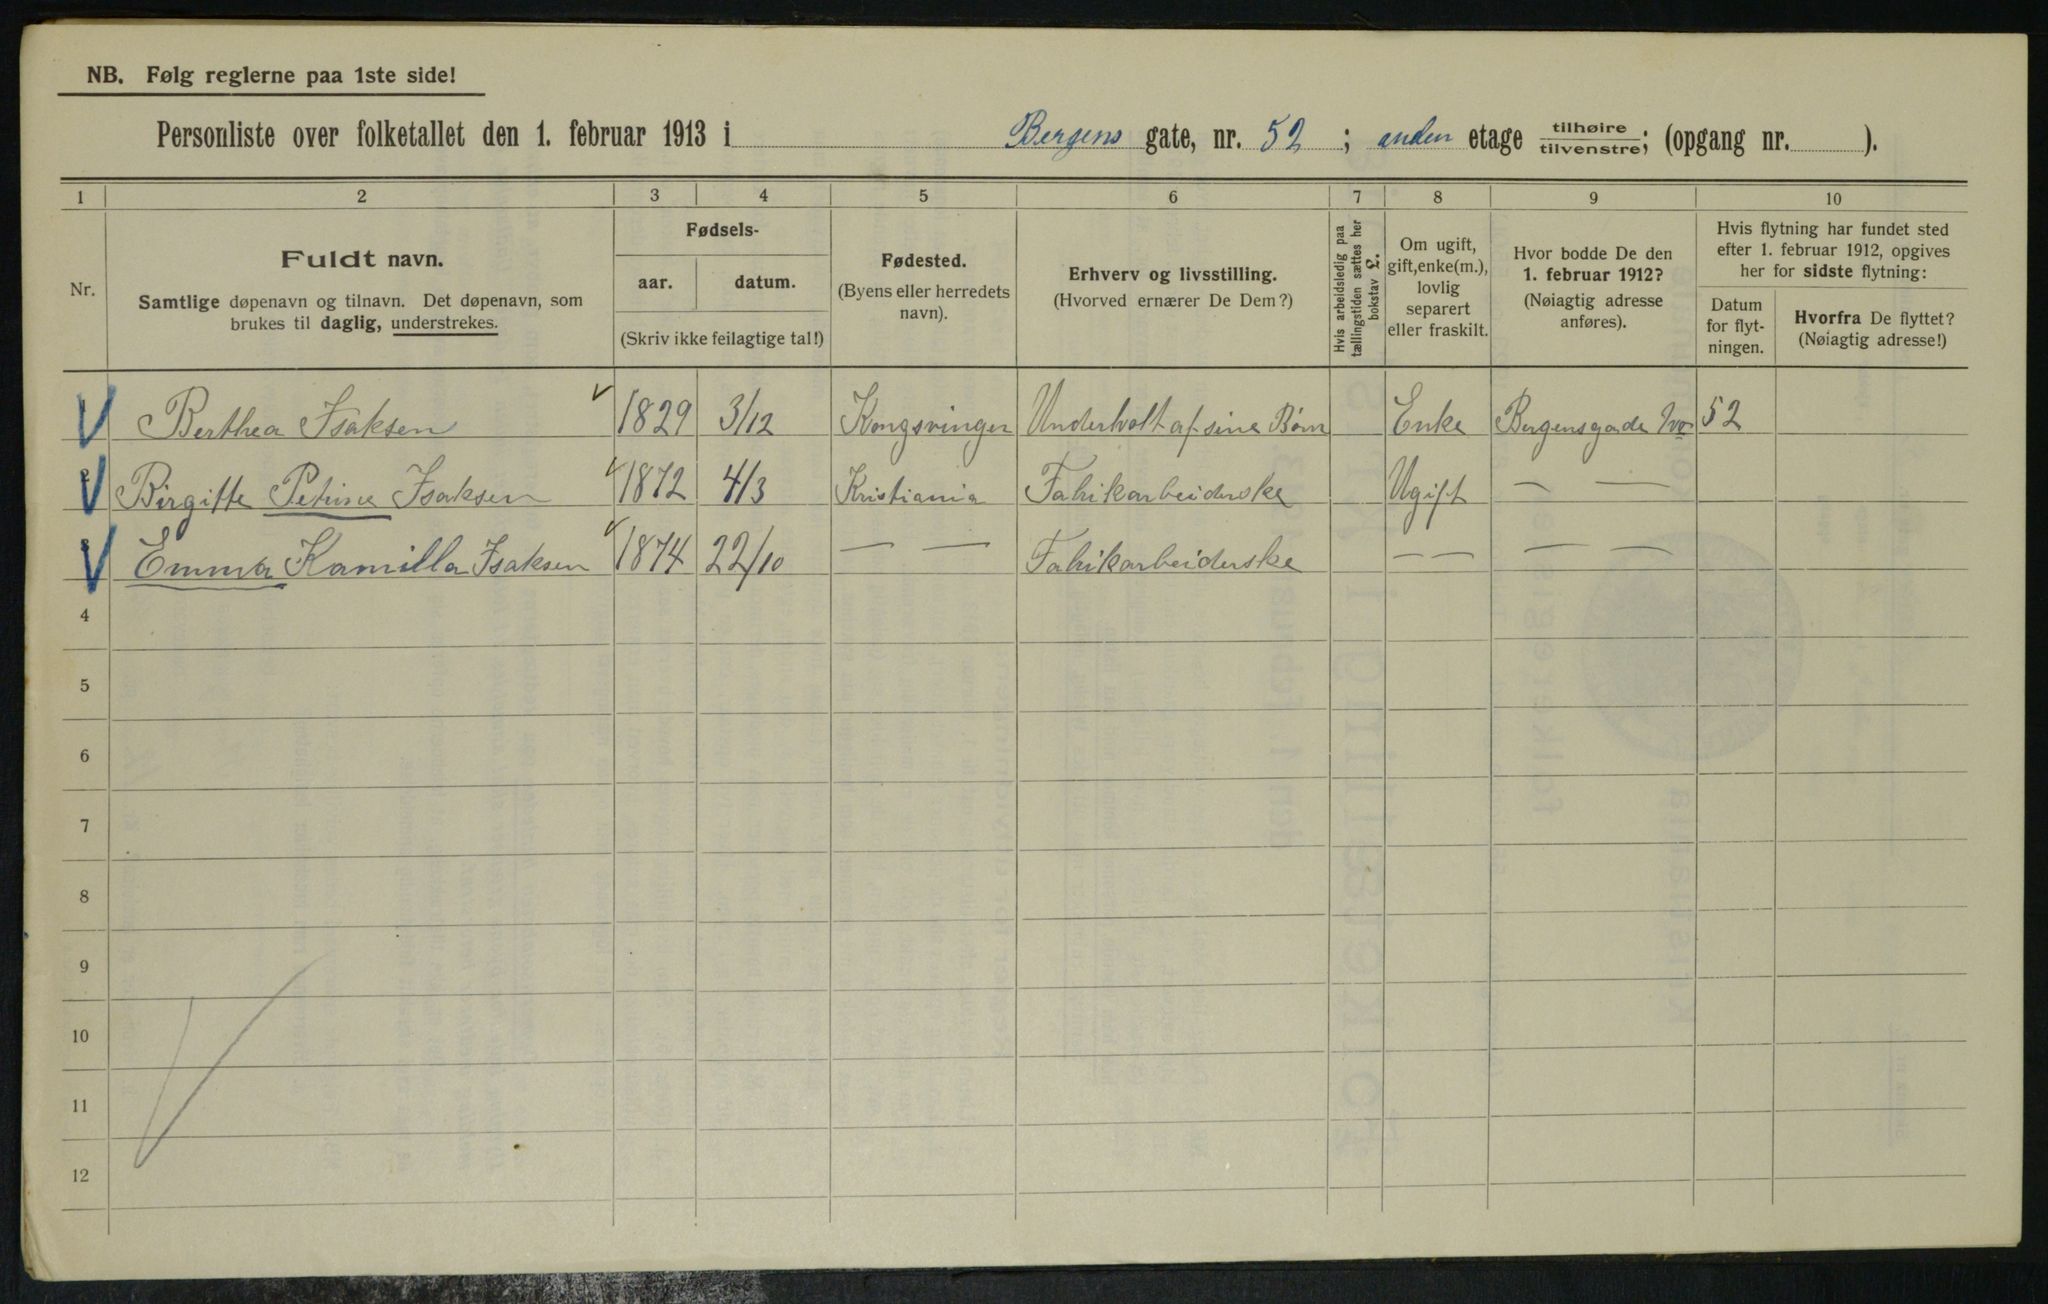 NB. Følg reglerne paa 1ste side!
Personliste over folketallet den 1. februar 1913 i Bergens gate, nr. 52 ; anden etage tilhøire tilvenstre; (opgang nr. ).
1 2 3 4 5 6 7 8 9 10
Nr.
Fuldt navn.
Samtlige døpenavn og tilnavn. Det døpenavn, som
brukes til daglig, understrekes.
Fødsels-
aar. datum.
(Skriv ikke feilagtige tal!)
Fødested.
(Byens eller herredets
navn).
Erhverv og livsstilling.
(Hvorved ernærer De Dem?)
Hvis arbeidsledig paa
tællingstiden sættes her
bokstav L.
Om ugift,
gift, enke(m.),
lovlig
separert
eller fraskilt.
Hvor bodde De den
1. februar 1912?
(Nøiagtig adresse
anføres).
Hvis flytning har fundet sted
efter 1. februar 1912, opgives
her for sidste flytning:
Datum
for flyt-
ningen.
Hvorfra De flyttet?
(Nøiagtig adresse!)
Berthea Isaksen 1829 3/12 Kongsvinger Underholt af sine Børn Enke Bergensgade No 52
Birgitte Petrine Isaksen 1872 4/3 Kristiania Fabrikarbeiderske Ugift — —
Emma Kamilla Isaksen 1874 22/10 — — Fabrikarbeiderske — — — —
4
5
6
7
8
9
10
11
12